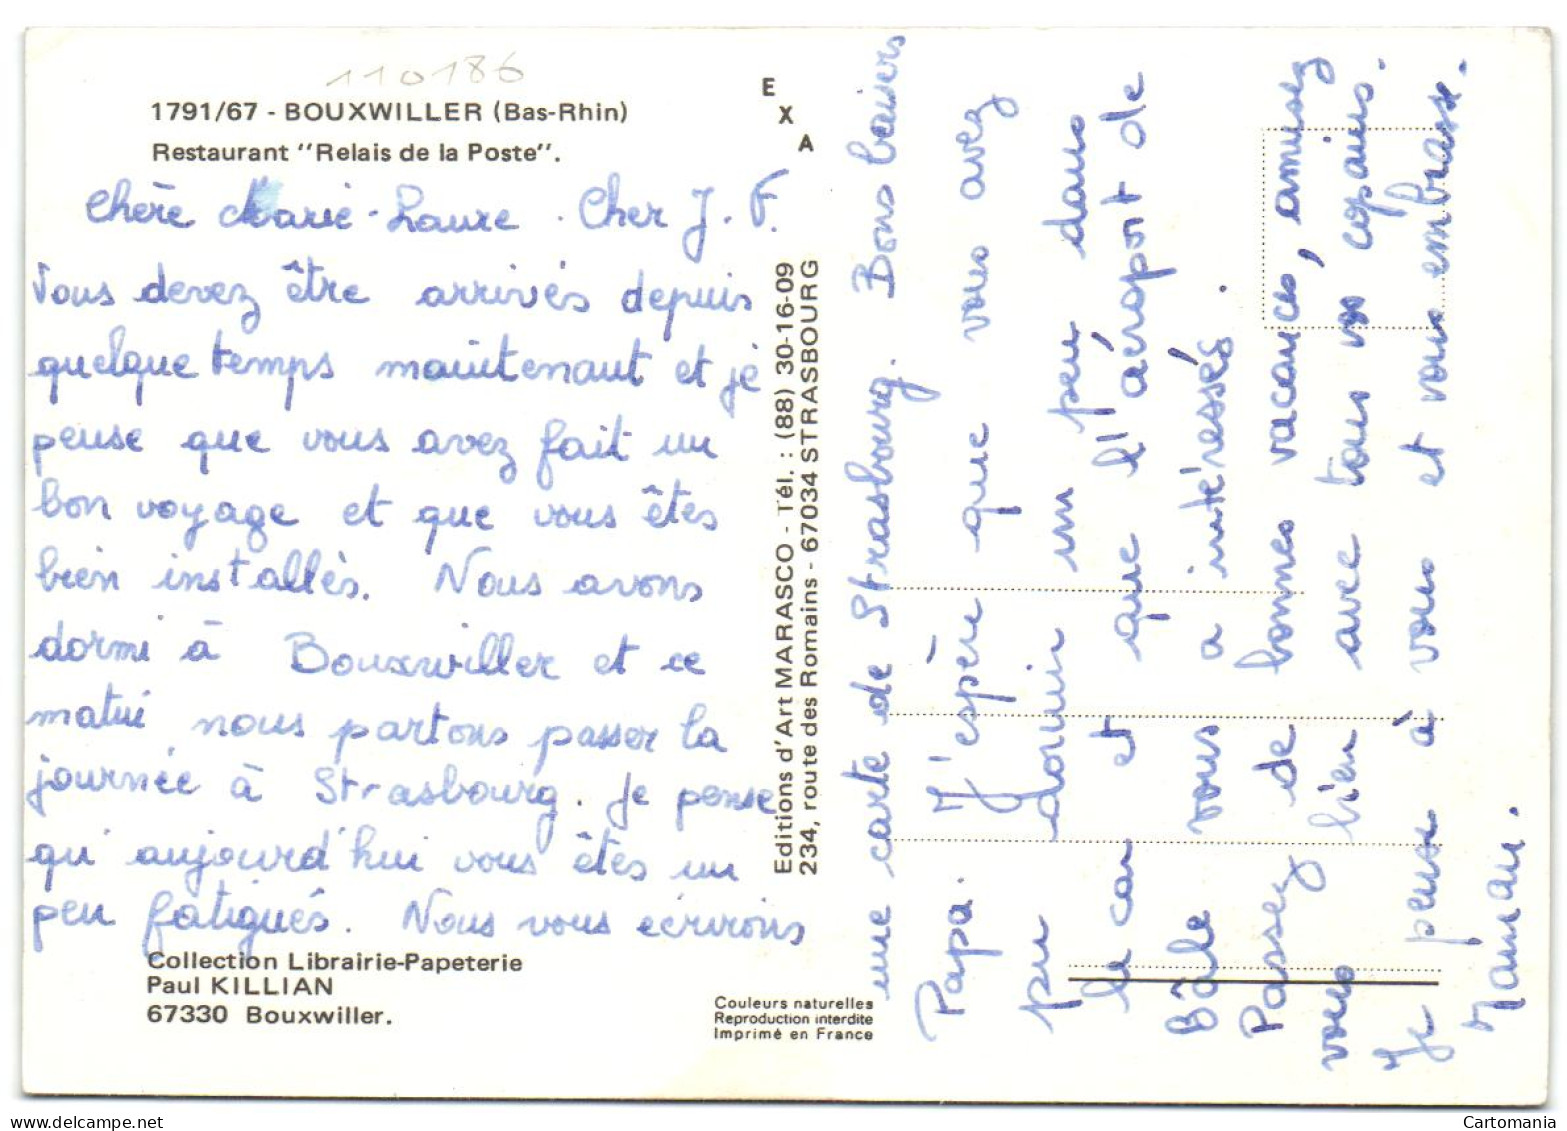 110186
1791/67 - BOUXWILLER (Bas-Rhin)
Restaurant "Relais de la Poste".
E
X
A
Chère Marie-Laure. Cher J.F.
Vous devez être arrivés depuis
quelque temps maintenant et je
pense que vous avez fait un
bon voyage et que vous êtes
bien installés. Nous avons
dormi à Bouxwiller et ce
matin nous partons passer la
journée à Strasbourg. Je pense
qu'aujourd'hui vous êtes un
peu fatigués. Nous vous écrivons
Collection Librairie-Papeterie
Paul KILLIAN
67330 Bouxwiller.
Editions d'Art MARASCO - Tél. : (88) 30-16-09
234, route des Romains - 67034 STRASBOURG
Couleurs naturelles
Reproduction interdite
Imprimé en France
une carte de Strasbourg. Bons baisers
Papa. J'espère que vous avez
pu dormir un peu dans
le car et que l'aéroport de
Bâle vous a intéressés.
Passez de bonnes vacances, amusez
vous bien avec tous vos copains.
Je pense à vous et vous embrasse.
Maman.
Cartomania